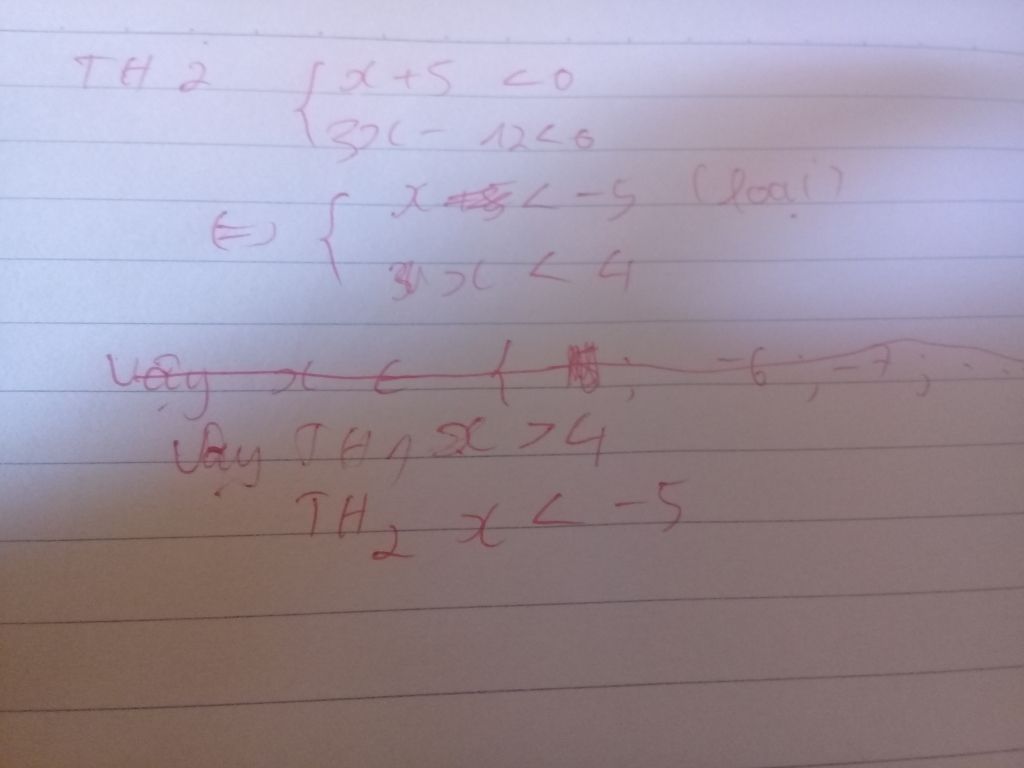 TH 2 { x + 5 < 0
3x - 12 < 0
<=> { x < -5 (loại)
x < 4
Vậy x ∈ { ; -6 ; -7 ; ...
Vậy TH1 x > 4
TH2 x < -5